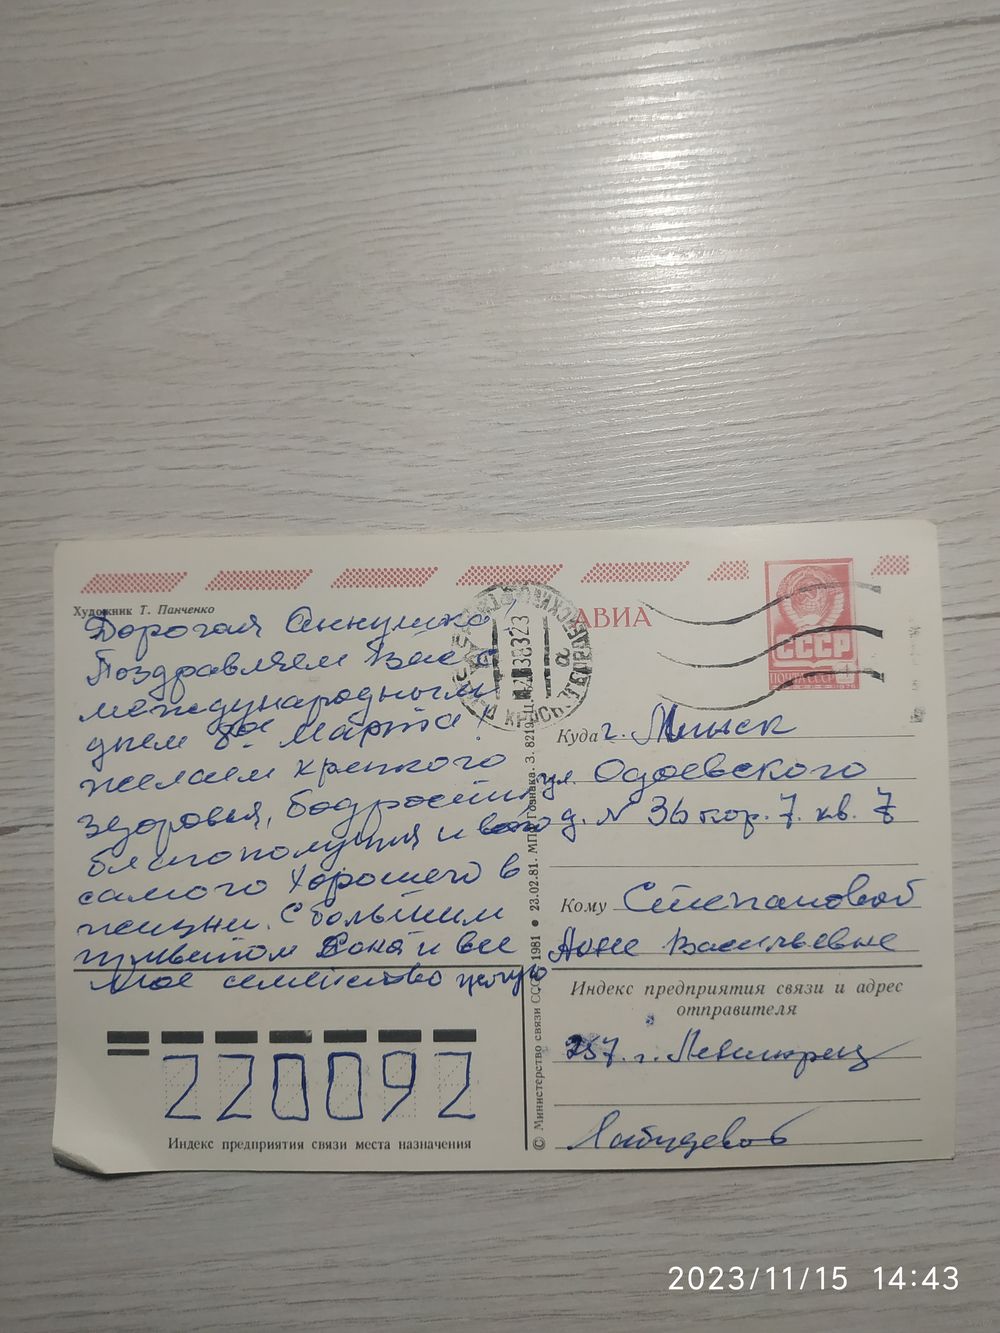 Художник Т. Панченко
Дорогая Аннушка!
Поздравляем Вас с
международным
днем 8ое Марта!
желаем крепкого
здоровья, бодрости
благополучия и
самого хорошего в
жизни. С большим
приветом и все
мое семейство целую
220092
Индекс предприятия связи места назначения
© Министерство связи СССР, 1981 • 23.02.81. МПФ Гознака. З. 8219.
АВИА
СССР
ПОЧТА СССР
Куда г. Минск
ул. Одоевского
д. N 36 кор. 7. кв. 7
Кому Степановой
Анне Васильевне
Индекс предприятия связи и адрес
отправителя
г. Ленинград
2023/11/15 14:43